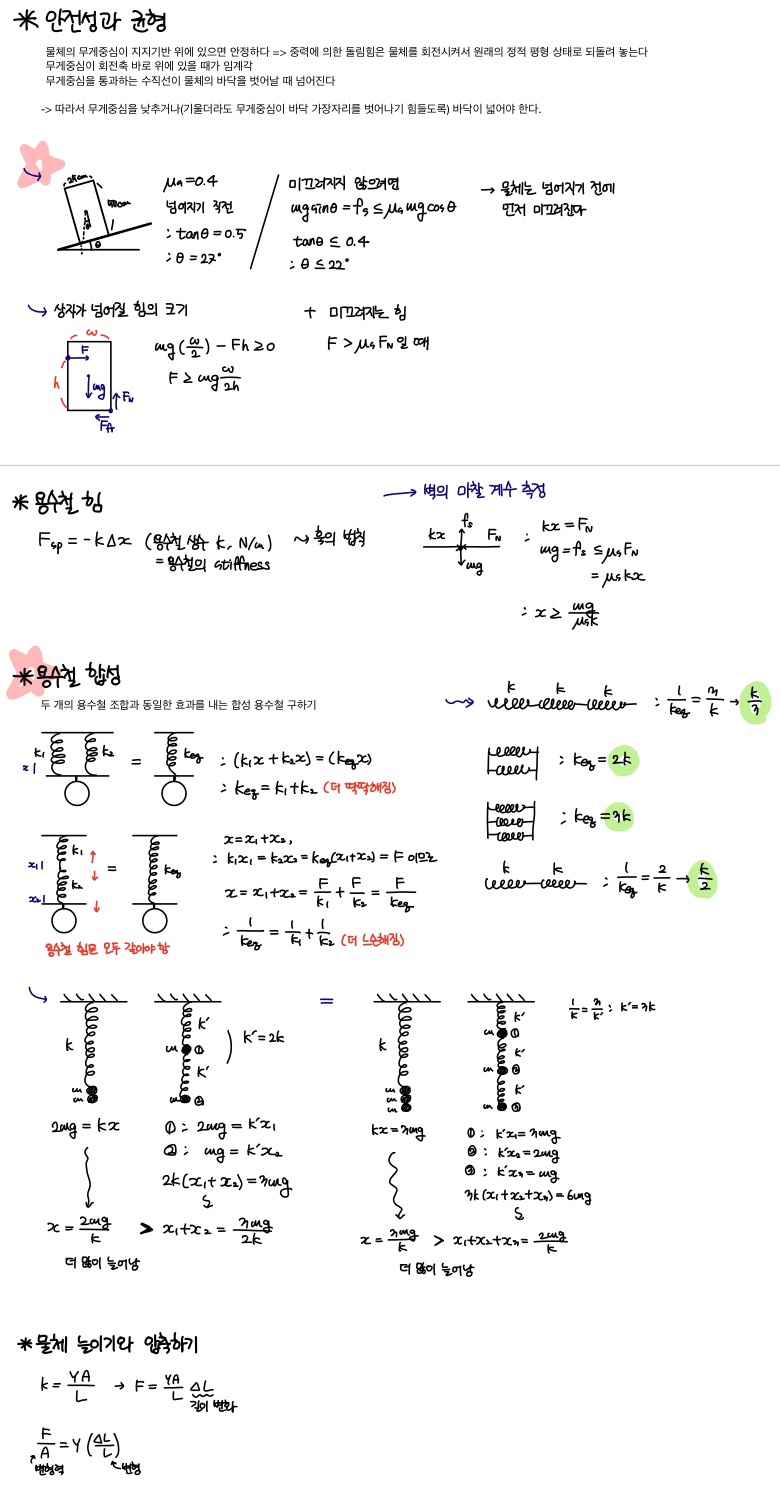 * 안전성과 균형
물체의 무게중심이 지지기반 위에 있으면 안정하다 => 중력에 의한 돌림힘은 물체를 회전시켜서 원래의 정적 평형 상태로 되돌려 놓는다
무게중심이 회전축 바로 위에 있을 때가 임계각
무게중심을 통과하는 수직선이 물체의 바닥을 벗어날 때 넘어진다
-> 따라서 무게중심을 낮추거나(기울더라도 무게중심이 바닥 가장자리를 벗어나기 힘들도록) 바닥이 넓어야 한다.
θ
μs = 0.4
넘어지기 직전
∴ tanθ = 0.5
∴ θ = 27°
미끄러지지 않으려면
mg sinθ = fs ≤ μs mg cosθ
tanθ ≤ 0.4
∴ θ ≤ 22°
→ 물체는 넘어지기 전에
먼저 미끄러진다
상자가 넘어질 힘의 크기
w
F
h
mg
FN
FA
mg(w/2) - Fh ≥ 0
F ≥ mg w/2h
+ 미끄러지는 힘
F > μs FN 일 때
* 용수철 힘
Fsp = -kΔx (용수철 상수 k, N/m)
= 용수철의 stiffness
~> 훅의 법칙
→ 벽의 마찰 계수 측정
fs
kx FN
mg
: kx = FN
mg = fs ≤ μs FN
= μs kx
∴ x ≥ mg/μsk
* 용수철 합성
두 개의 용수철 조합과 동일한 효과를 내는 합성 용수철 구하기
k1 k2 = keq
x
∴ (k1x + k2x) = (keq x)
∴ keq = k1 + k2 (더 딱딱해짐)
k k k : 1/keq = 3/k → k/3
: keq = 2k
: keq = 3k
k k : 1/keq = 2/k → k/2
x1 k1
x2 k2
= keq
용수철 힘은 모두 같아야 함
x = x1 + x2,
∴ k1x1 = k2x2 = keq(x1+x2) = F 이므로
x = x1 + x2 = F/k1 + F/k2 = F/keq
∴ 1/keq = 1/k1 + 1/k2 (더 느슨해짐)
k
m
m
k'
m ①
k'
m ②
k' = 2k
2mg = kx
①: 2mg = k'x1
②: mg = k'x2
2k(x1 + x2) = 3mg
x = 2mg/k > x1 + x2 = 3mg/2k
더 많이 늘어남
=
k
m
m
m
k'
m ①
k'
m ②
k'
m ③
1/k = 3/k' : k' = 3k
kx = 3mg
①: k'x1 = 3mg
②: k'x2 = 2mg
③: k'x3 = mg
3k(x1+x2+x3) = 6mg
x = 3mg/k > x1+x2+x3 = 2mg/k
더 많이 늘어남
* 물체 늘이기와 압축하기
k = YA/L → F = YA/L ΔL
길이 변화
F/A = Y(ΔL/L)
변형력
변형